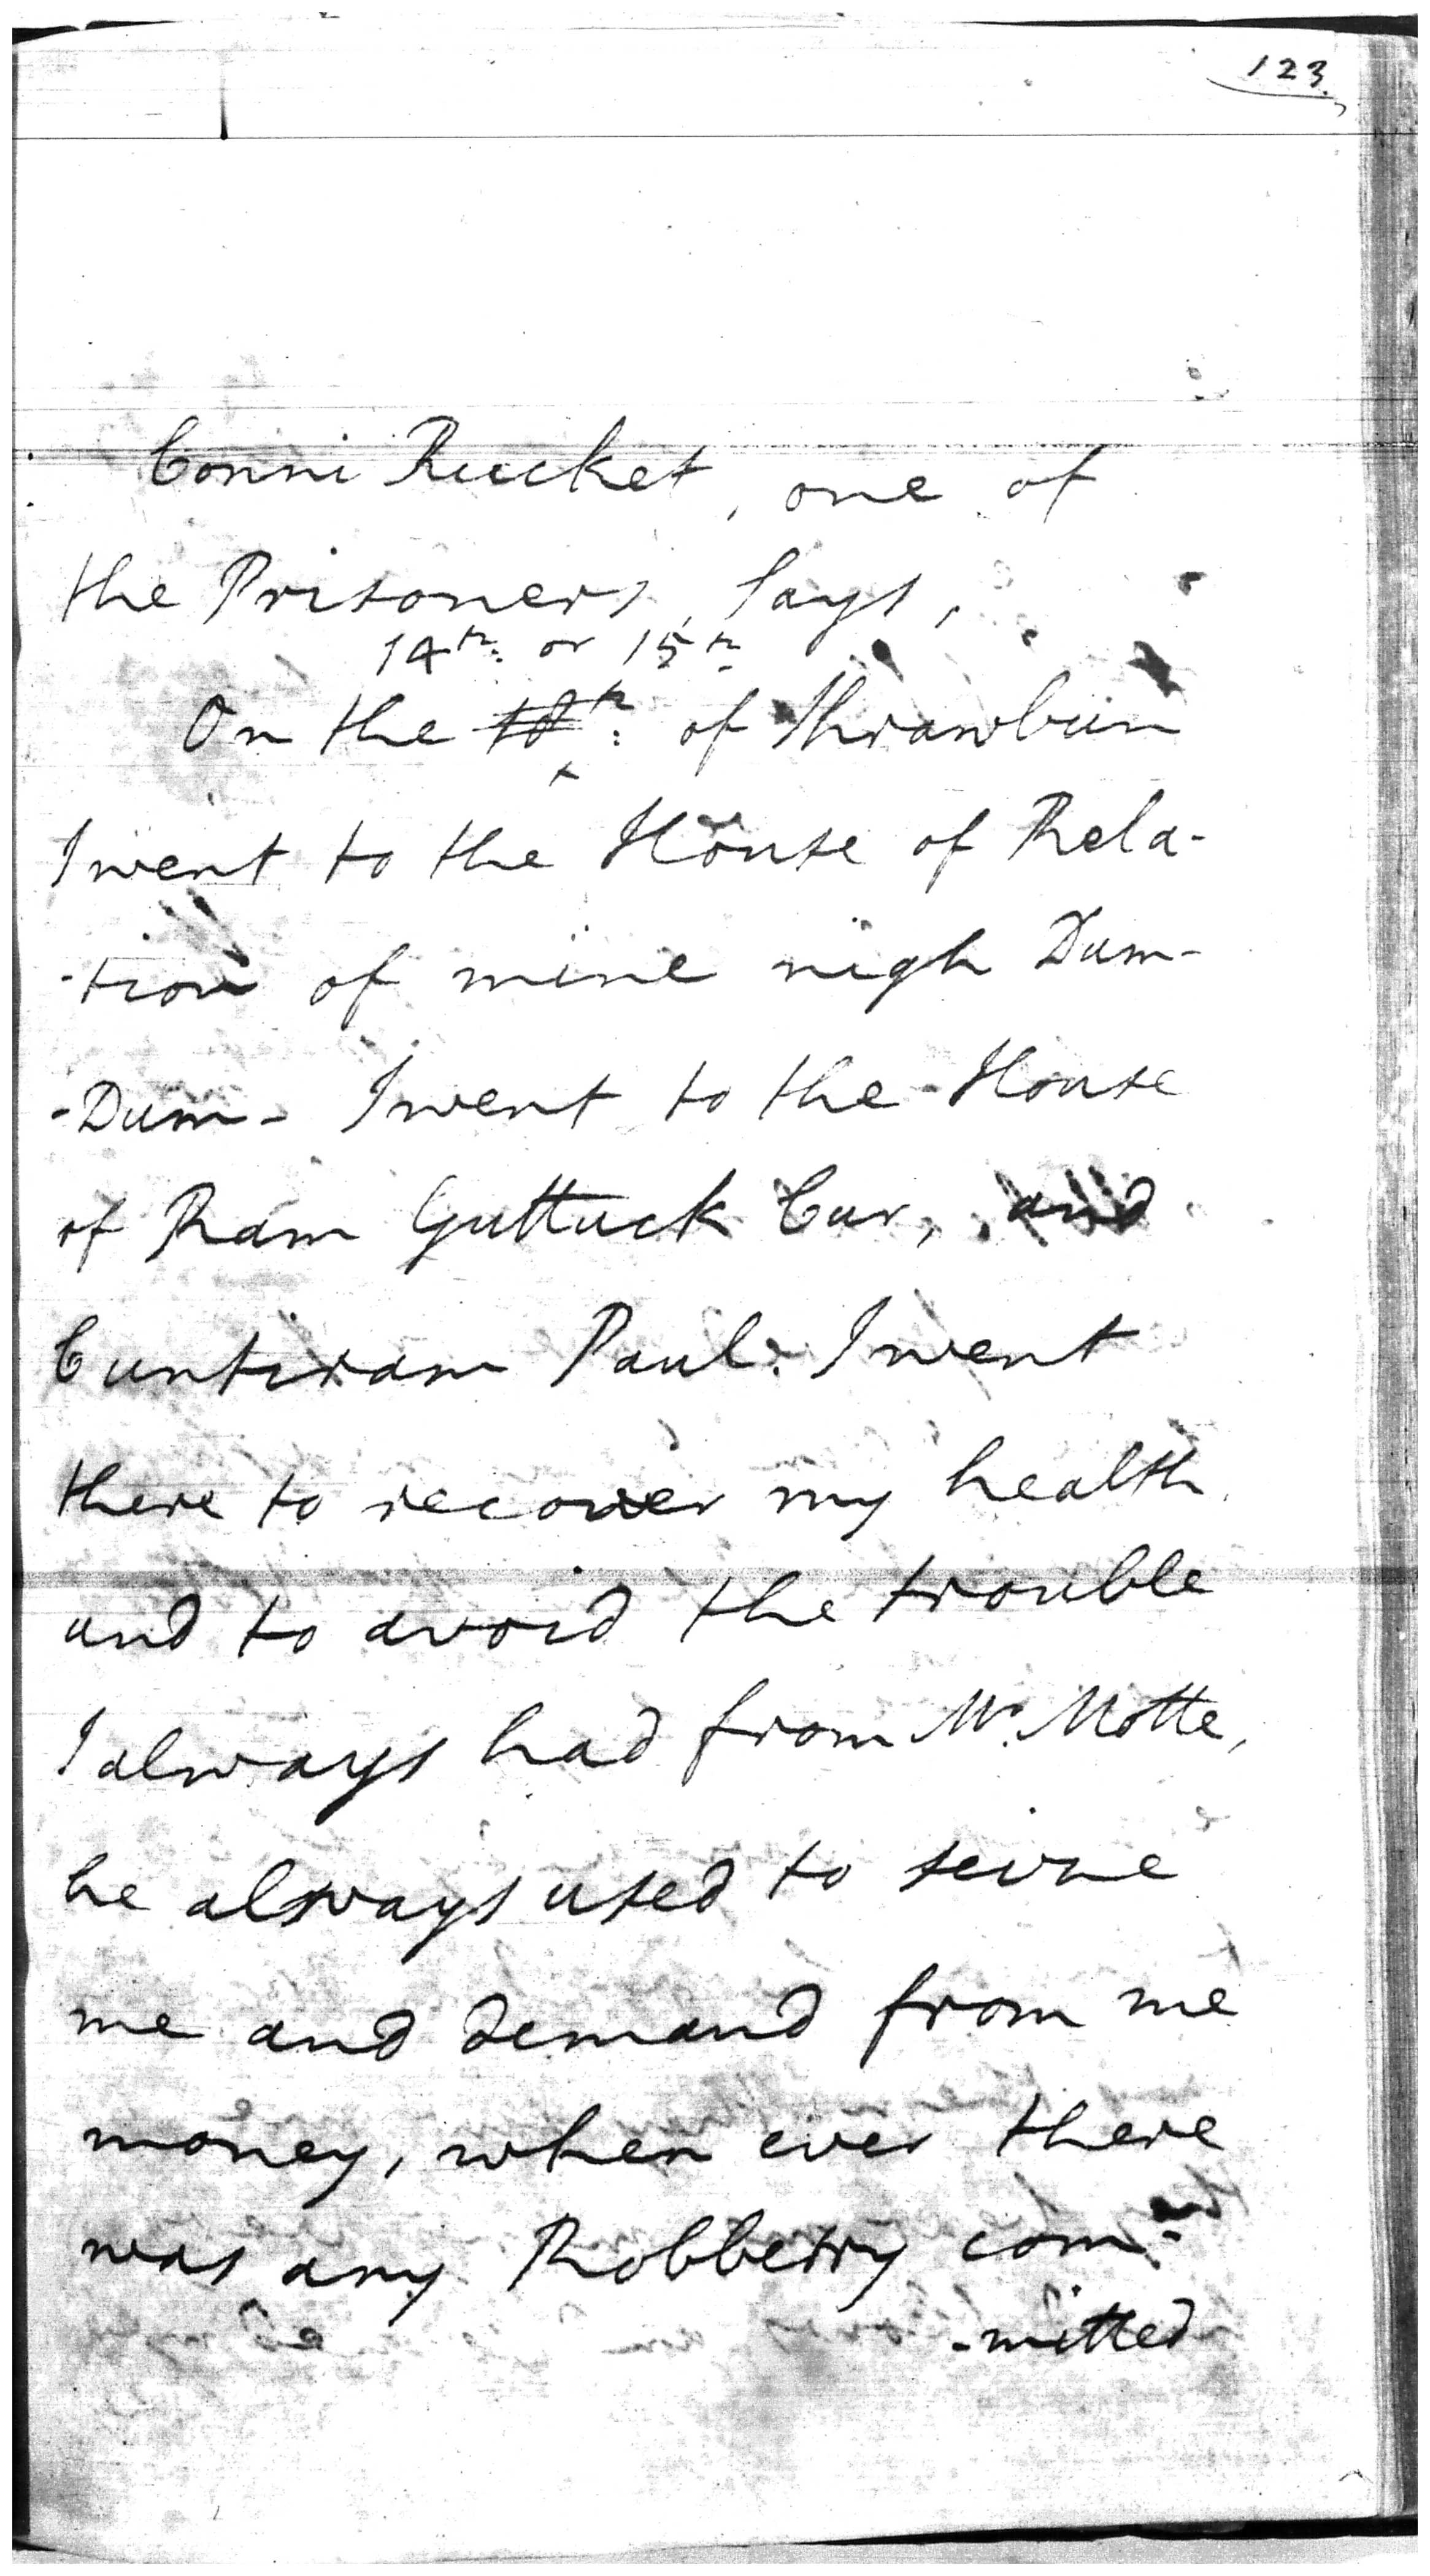 123
Conni Rucket, one of
the Prisoners, Says,
14th: or 15th
On the 10th: of Shrawbun
I went to the House of Rela-
-tion of mine nigh Dum-
-Dum- I went to the House
of Ram Guttuck Cur, and
Cuntiram Paul. I went
there to recover my health
and to avoid the trouble
I always had from Mr. Motte,
he always used to seize
me and demand from me
money, when ever there
was any Robbetry com-
-mitted